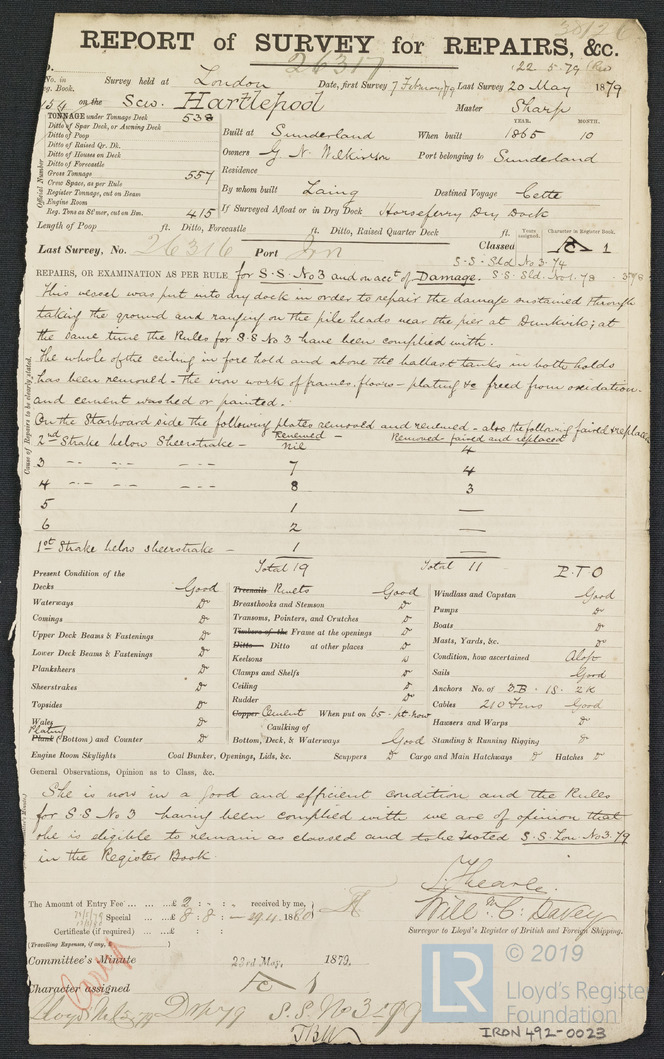 REPORT of SURVEY for REPAIRS, &c.
26317
22.5.79
No. in Reg. Book. Survey held at London Date, first Survey 7 February 79 Last Survey 20 May 1879
on the Scw. Hartlepool Master Sharp
TONNAGE under Tonnage Deck 538
Ditto of Spar Deck, or Awning Deck
Ditto of Poop
Ditto of Raised Qr. Dk.
Ditto of Houses on Deck
Ditto of Forecastle
Gross Tonnage 557
Crew Space, as per Rule
Register Tonnage, cut on Beam
Engine Room
Reg. Tons as St'mer, cut on Bm. 415
Official Number
YEAR. MONTH.
Built at Sunderland When built 1865 10
Owners G. N. Wilkinson Port belonging to Sunderland
Residence
By whom built Laing Destined Voyage Cette
If Surveyed Afloat or in Dry Dock Horseferry Dry Dock
Length of Poop ft. Ditto, Forecastle ft. Ditto, Raised Quarter Deck ft. Years assigned. Character in Register Book.
Last Survey, No. 26316 Port Irn Classed A 1
S.S. Sld No 3.74
REPAIRS, OR EXAMINATION AS PER RULE for S.S. No 3 and on acct of Damage. S.S. Sld. No 1.78
This vessel was put into dry dock in order to repair the damage sustained through
taking the ground and ranging on the pile heads near the pier at Dunkirk; at
the same time the Rules for S.S No 3 have been complied with.
The whole of the ceiling in fore hold and above the ballast tanks in both holds
has been removed - the iron work of frames, floors - plating &c freed from oxidation
and cement washed or painted.
On the Starboard side the following plates removed and renewed - also the following faired & replaced
Renewed - Removed faired and replaced
2nd Strake below Sheerstrake - Nil 4
3 -- -- -- 7 4
4 -- -- -- 8 3
5 1 —
6 2 —
1st Strake below sheerstrake - 1 —
Total 19 Total 11 P.T.O
Cause of Repairs to be clearly stated.
Present Condition of the
Decks Good
Waterways Do
Comings Do
Upper Deck Beams & Fastenings Do
Lower Deck Beams & Fastenings Do
Planksheers Do
Sheerstrakes Do
Topsides Do
Wales Do
Plating
Plank (Bottom) and Counter Do
Treenails Rivets Good
Breasthooks and Stemson Do
Transoms, Pointers, and Crutches Do
Timbers of the Frame at the openings Do
Ditto Ditto at other places Do
Keelsons Do
Clamps and Shelfs Do
Ceiling Do
Rudder Do
Copper Cement When put on 65 . pt. now
Caulking of
Bottom, Deck, & Waterways Good
Windlass and Capstan Good
Pumps Do
Boats Do
Masts, Yards, &c. Do
Condition, how ascertained Aloft
Sails Good
Anchors No. of 3B . 1S . 2K
Cables 210 Fms Good
Hawsers and Warps Do
Standing & Running Rigging Do
Engine Room Skylights Coal Bunker, Openings, Lids, &c. Scuppers Do Cargo and Main Hatchways Do Hatches Do
General Observations, Opinion as to Class, &c.
She is now in a good and efficient condition and the Rules
for S.S No 3 having been complied with we are of opinion that
she is eligible to remain as classed and to be noted S.S. Lon. No 3.79
in the Register Book.
The Amount of Entry Fee ... ... ... £ 2 : - : - received by me,
Special ... ... £ 8 : 8 : -
Certificate (if required) ... ... £ : :
(Travelling Expenses, if any, )
Will. C. Davey
Surveyor to Lloyd's Register of British and Foreign Shipping.
Committee's Minute 23rd May, 1879.
Character assigned A 1
S.S. No 3
© 2019
LR Lloyd's Register
Foundation
IRON 492-0023